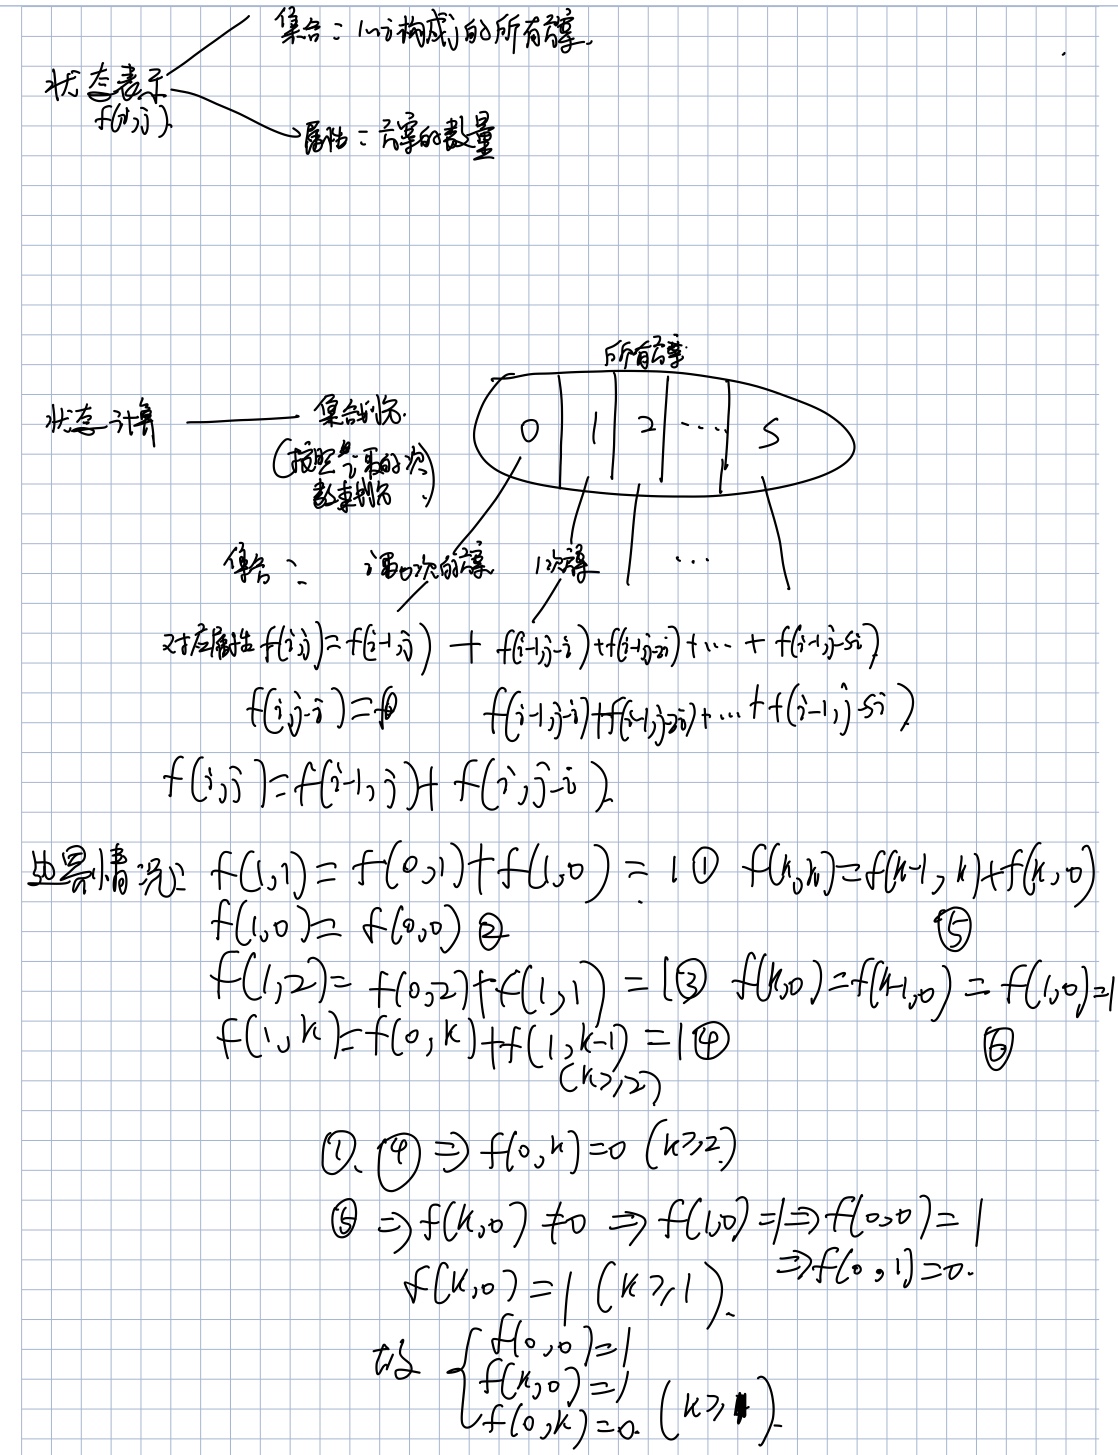 集合：1~i构成j的所有方案.
状态表示
f(i,j).
属性：方案的数量
所有方案
状态计算
集合划分.
(按照第i取的次
数来划分.)
0 1 2 .... S
集合：
i取0次的方案
1次方案
...
对应属性 f(i,j)=f(i-1,j) + f(i-1,j-i)+f(i-1,j-2i)+...+ f(i-1,j-si)
f(i,j-i)= f(i-1,j-i)+f(i-1,j-2i)+...+f(i-1,j-si)
f(i,j)=f(i-1,j)+f(i,j-i).
边界情况: f(1,1)=f(0,1)+f(1,0)=1① f(k,k)=f(k-1,k)+f(k,0)
⑤
f(1,0)=f(0,0)②
f(1,2)=f(0,2)+f(1,1)=1③ f(k,0)=f(k-1,0)=f(1,0)=1
⑥
f(1,k)=f(0,k)+f(1,k-1)=1④
(k≥2)
①、④⇒f(0,k)=0 (k≥2)
⑤⇒f(k,0)≠0⇒f(1,0)=1⇒f(0,0)=1
⇒f(0,1)=0.
f(k,0)=1(k≥1).
故 { f(0,0)=1
f(k,0)=1
f(0,k)=0. (k≥1).